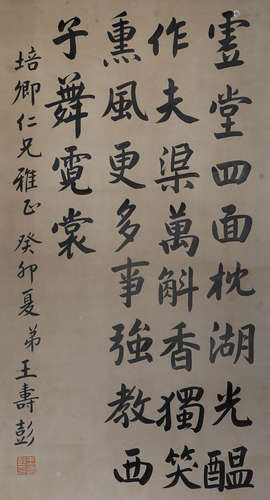 虗堂四面枕湖光醖
作夫渠萬斛香獨笑
熏風更多事強教西
子舞霓裳
培卿仁兄雅正 癸卯夏 弟王壽彭